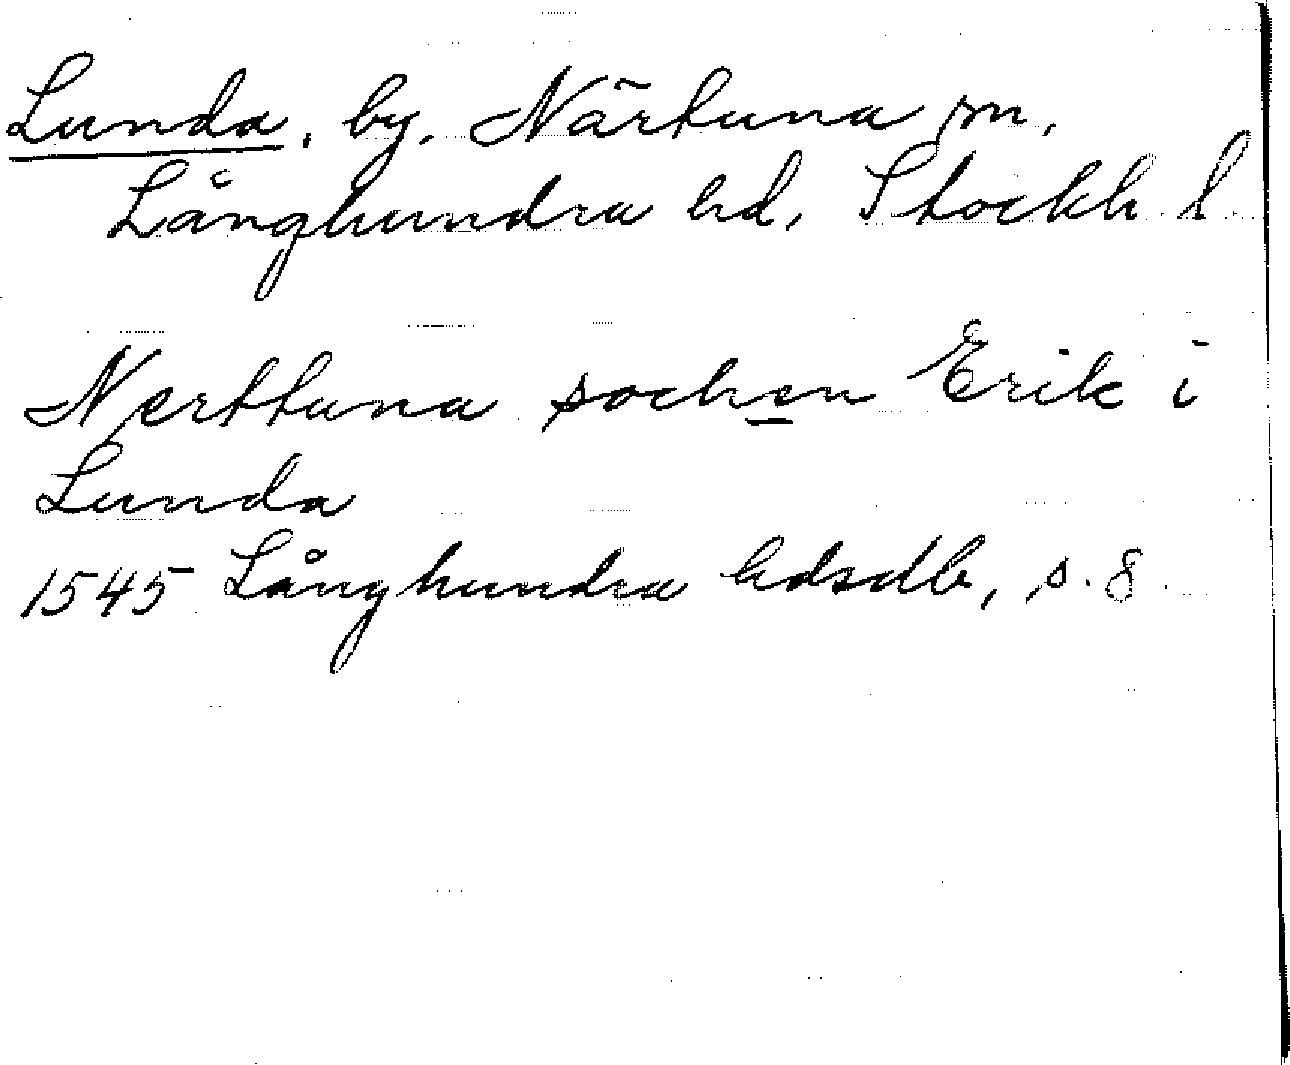 Lunda, by, Närtuna sn,
Långhundra hd, Stockh l
Nerttuna sochen Erik i
Lunda
1545 Långhundra hdsdb, s. 8